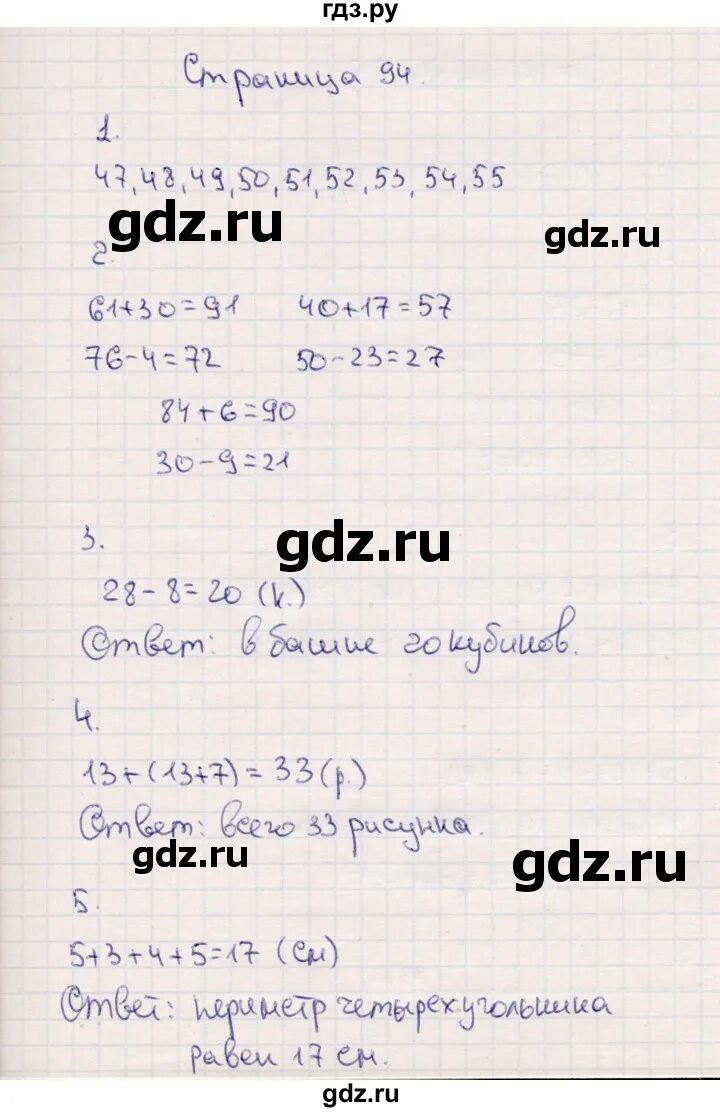 гдз.ру
Страница 94.
1.
47, 48, 49, 50, 51, 52, 53, 54, 55
gdz.ru
gdz.ru
2.
61+30=91 40+17=57
76-4=72 50-23=27
84+6=90
30-9=21
gdz.ru
3.
28-8=20 (к.)
Ответ: в башне 20 кубиков.
4.
13+(13+7)=33(р.)
Ответ: всего 33 рисунка.
gdz.ru
gdz.ru
5.
5+3+4+5=17 (см)
Ответ: периметр четырехугольника
равен 17 см.
gdz.ru